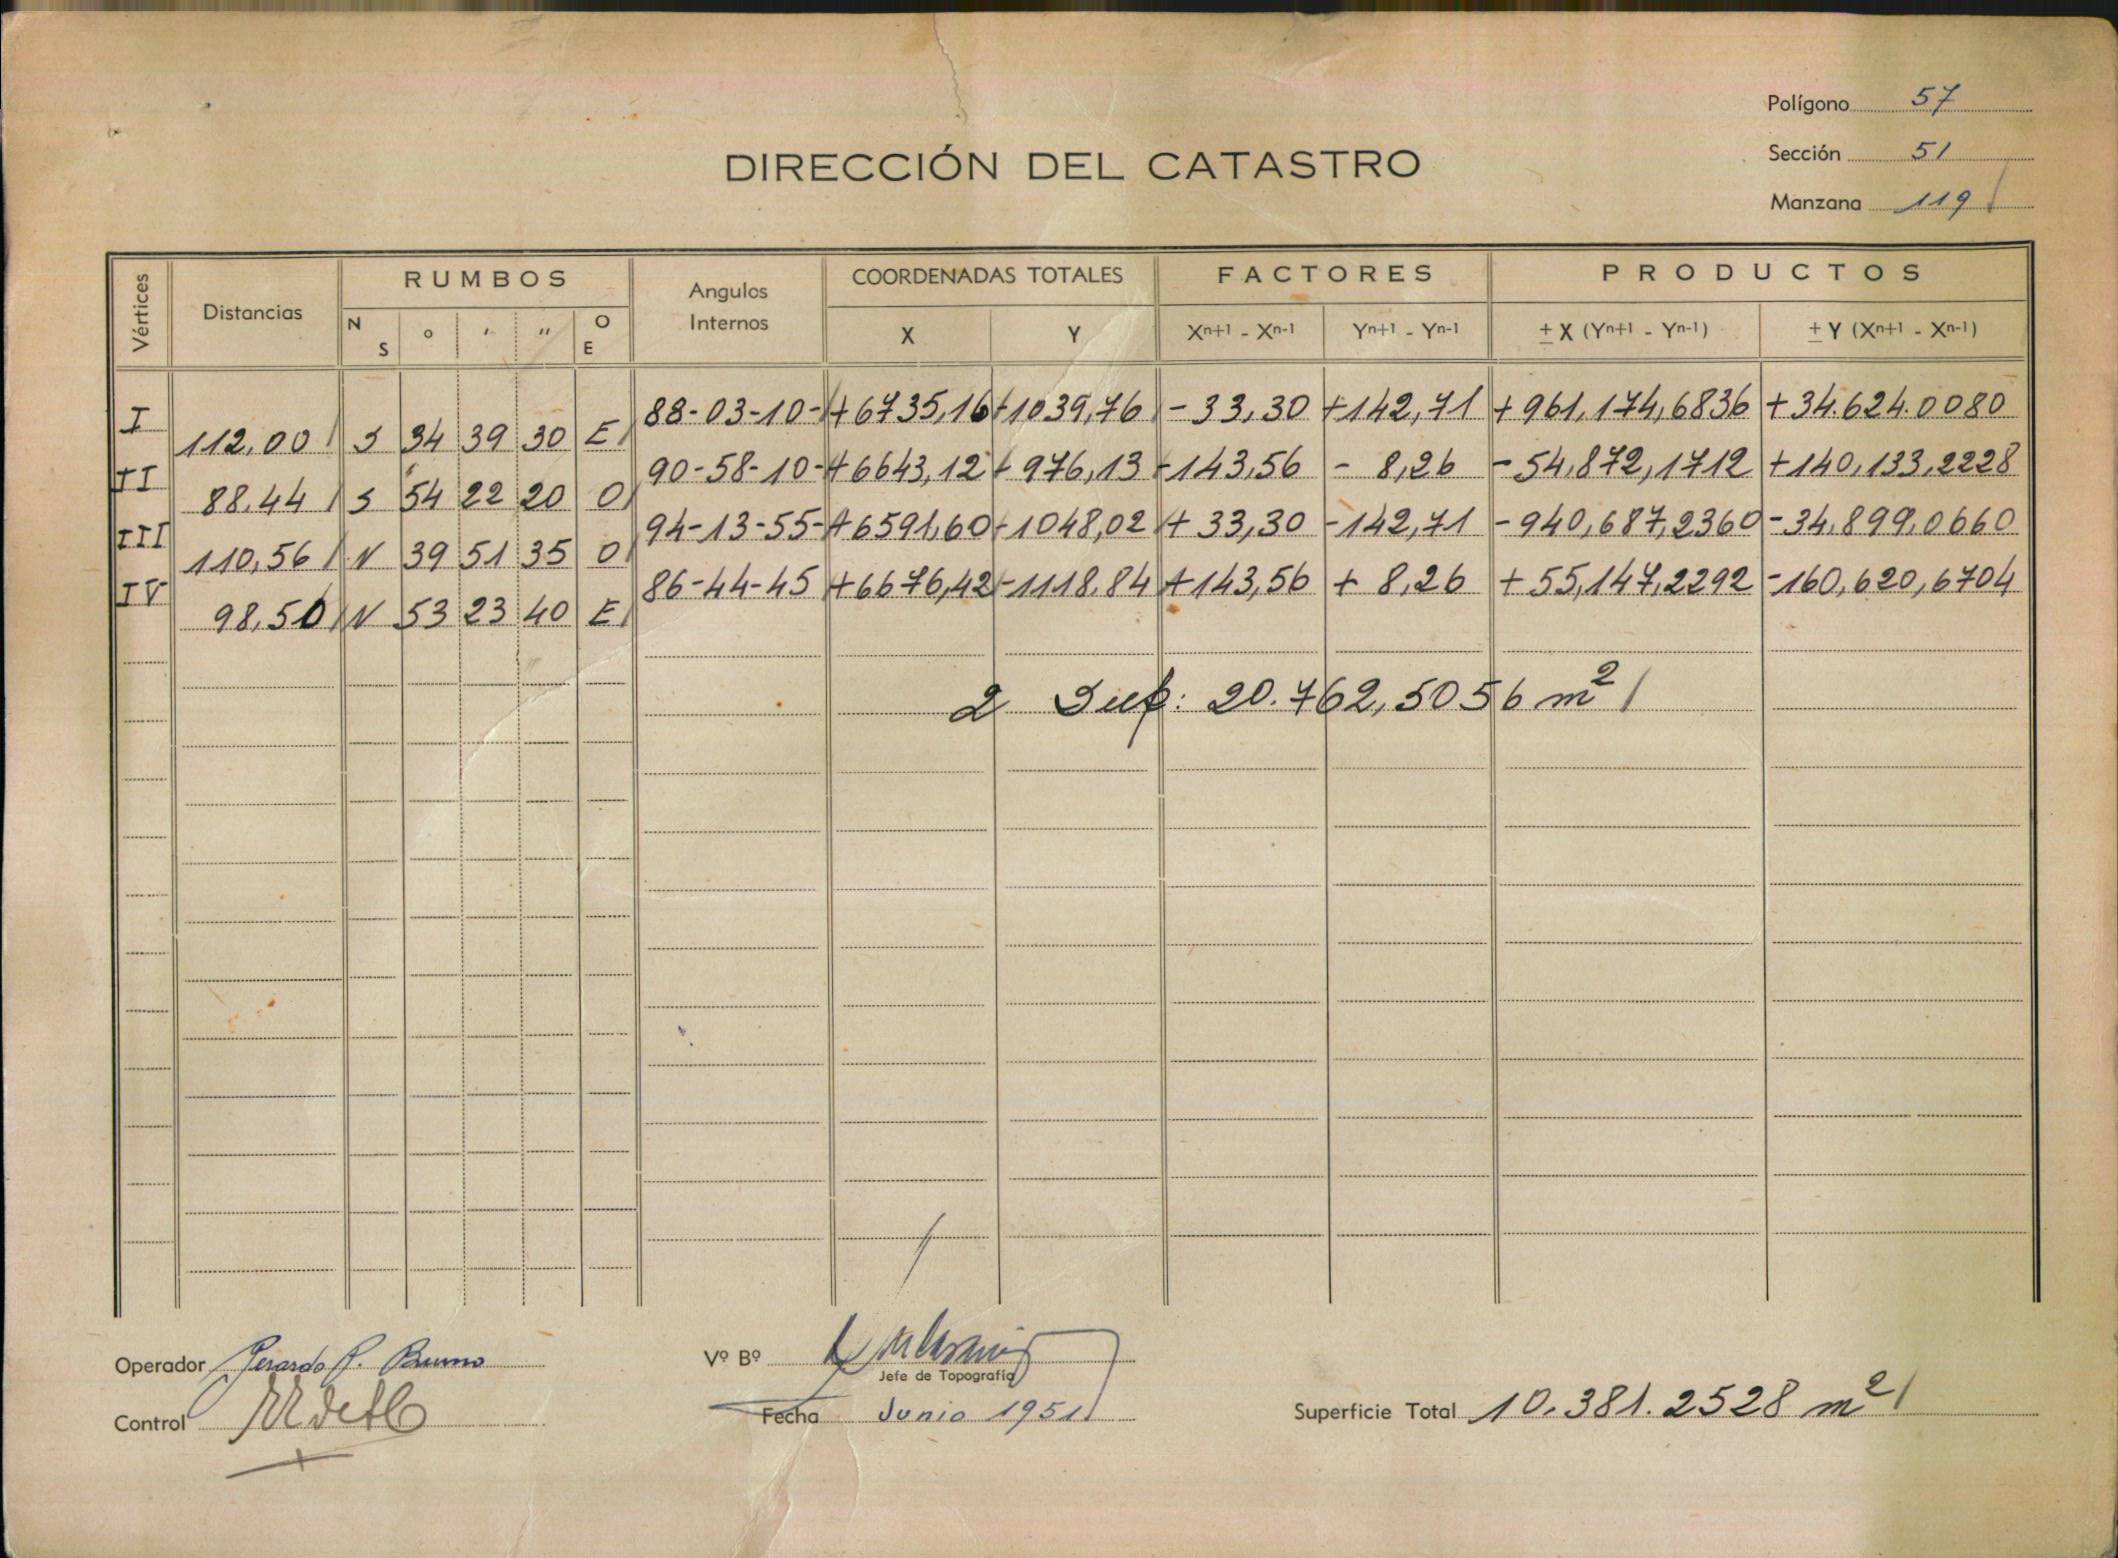 Polígono 57
DIRECCIÓN DEL CATASTRO
Sección 51
Manzana 119
Vértices Distancias RUMBOS Angulos Internos COORDENADAS TOTALES FACTORES PRODUCTOS
N S ° ′ ″ O E X Y Xn+1 - Xn-1 Yn+1 - Yn-1 ± X (Yn+1 - Yn-1) ± Y (Xn+1 - Xn-1)
I 88-03-10- +6735,16 -1039,76 -33,30 +142,71 +961,174,6836 +34.624.0080
112,00 S 34 39 30 E
II 90-58-10- +6643,12 - 976,13 -143,56 - 8,26 -54,872,1712 +140,133,2228
88,44 S 54 22 20 O
III 94-13-55- +6591,60 -1048,02 + 33,30 -142,71 -940,687,2360 -34,899,0660
110,56 N 39 51 35 O
IV 86-44-45 +6676,42 -1118,84 +143,56 + 8,26 +55,147,2292 -160,620,6704
98,50 N 53 23 40 E
2 Sup: 20.762,5056 m²
Operador Gerardo P. Bruno
Vº Bº
Jefe de Topografía
Control
Fecha Junio 1951
Superficie Total 10.381.2528 m²